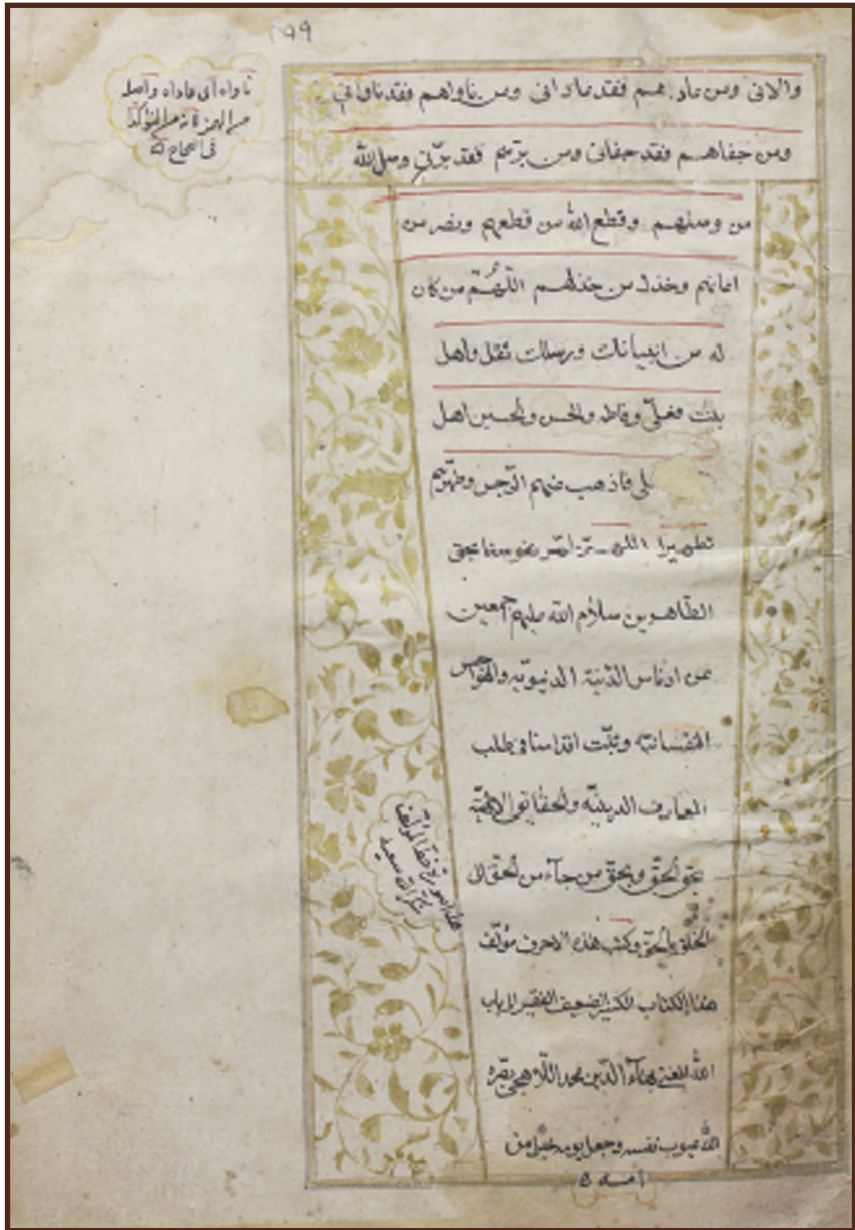 ۲۹۹
ناواه ای عاداه واصله
من الهمزة
فی الصحاح
والانی ومن عاداهم فقد عادانی ومن ناواهم فقد ناوانی
ومن جفاهم فقد جفانی ومن برّهم فقد برّنی وصل الله
من وصلهم وقطع الله من قطعهم ونصر من
اعانهم وخذل من خذلهم اللّهُمّ من کان
له من انبیائک ورسلک ثقل واهل
بیت فعلیّ وفاطمه والحسن والحسین اهل
فاذهب عنهم الرّجس وطهّرهم
تطهیرا اللهم نفوسنا بحق
الطّاهرین سلام الله علیهم اجمعین
عن ادناس الدّنیة الدنیویّه والهواجس
النفسانیّه وثبّت اقدامنا فی طلب
المعارف الدینیّه والحقایق الالهیّه
بحق الحقّ وبحق من جآء من الحقّ الی
الخلق بالحقّ وکتب هذه الاحرف مؤلّف
هذا الکتاب الکثیر الضعیف الفقیر الی باب
الله الغنی بهآء الدّین محمد اللّاهجی بصّره
الله عیوب نفسه وجعل یومه خیرا من
امسه
هذا صورة خطّ المؤلّف
شکر الله سعیه